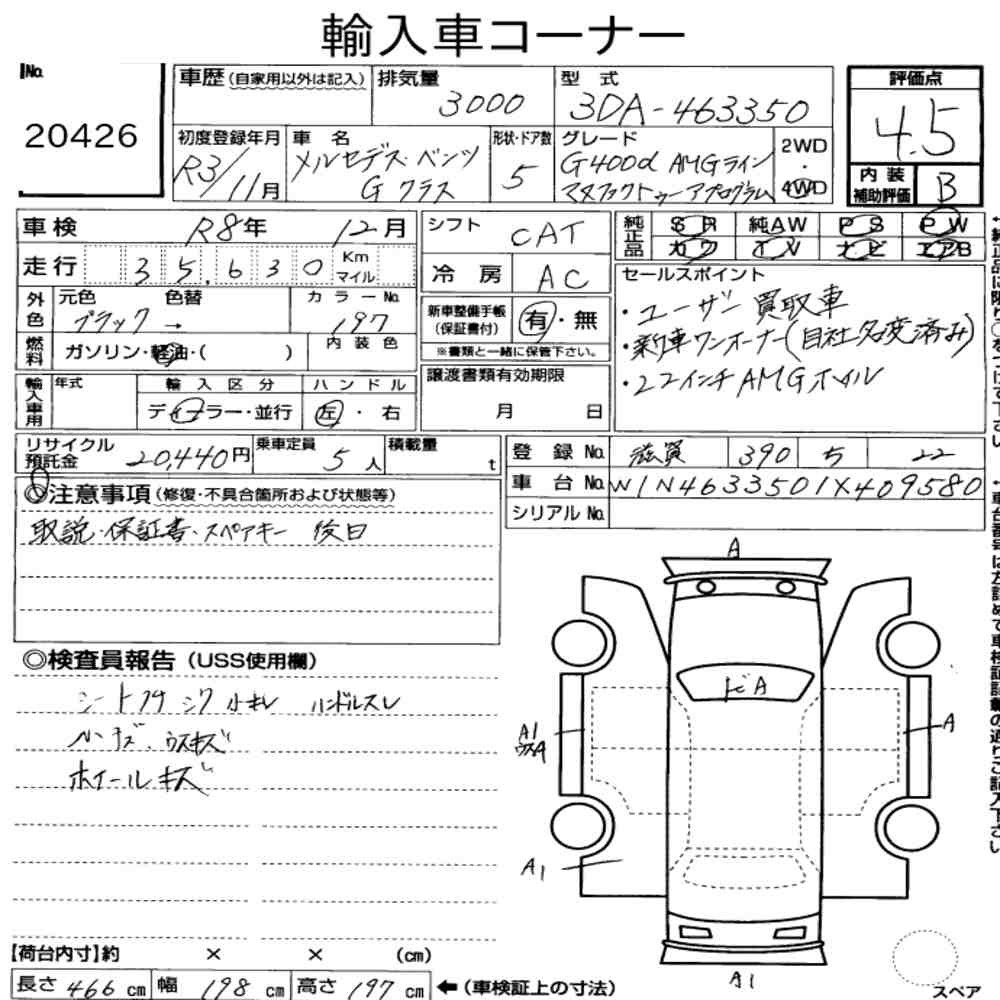 輸入車コーナー
No.
20426
車歴 (自家用以外は記入)
排気量
3000
型式
3DA-463350
評価点
4.5
初度登録年月
R3/11月
車名
メルセデス・ベンツ
Gクラス
形状・ドア数
5
グレード
G400d AMGライン
マヌファクトゥーアプログラム
2WD
・
4WD
内装
補助評価
B
車検 R8年 12月
シフト
CAT
純正品
SR 純AW PS PW
カワ TV ナビ エアB
走行 35,630 Km マイル
冷房
AC
セールスポイント
・ユーザー買取車
・新車ワンオーナー(自社名変済み)
・22インチAMGホイル
外色
元色 色替
ブラック →
カラーNo.
197
新車整備手帳
(保証書付)
有・無
※書類と一緒に保管下さい。
燃料
ガソリン・軽油・( )
内装色
輸入車用
年式
輸入区分
ディーラー・並行
ハンドル
左・右
譲渡書類有効期限
月 日
リサイクル
預託金 20,440円
乗車定員
5人
積載量
t
登録No. 滋賀 390 ち 22
車台No. W1N4633501X409580
シリアルNo.
◎注意事項 (修復・不具合箇所および状態等)
取説・保証書・スペアキー 後日
◎検査員報告 (USS使用欄)
シート シワ 小キレ ハンドルスレ
ウスキズ
ホイールキズ
A
ドA
A1
A
A1
A1
スペア
【荷台内寸】約 × × (cm)
長さ 466 cm 幅 198 cm 高さ 197 cm ←(車検証上の寸法)